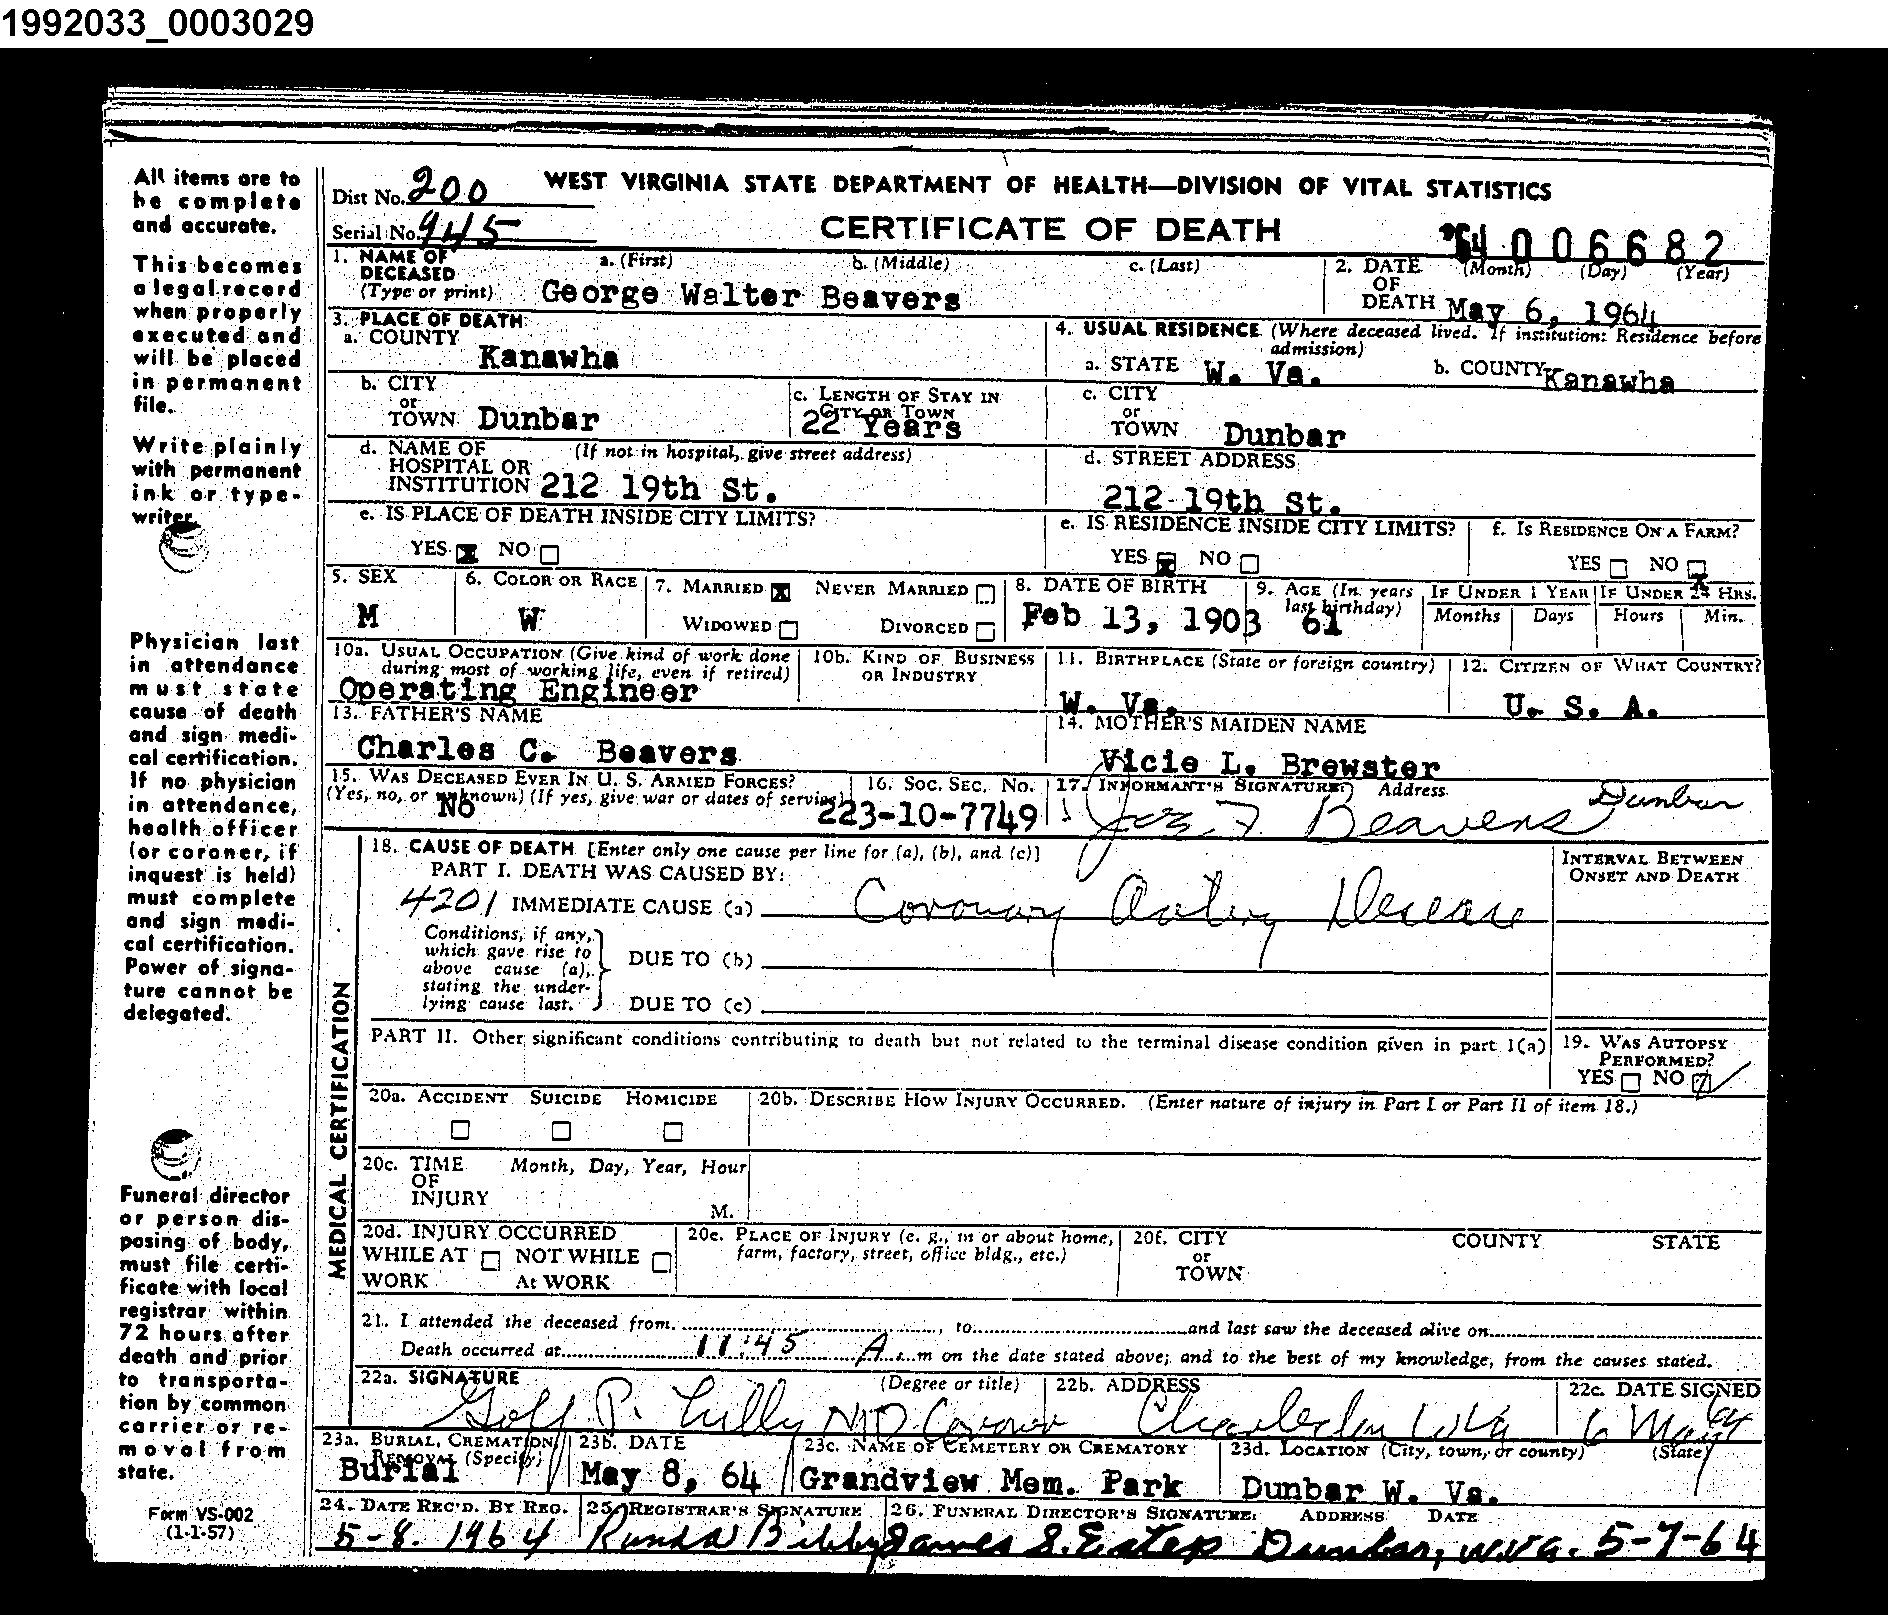 1992033_0003029
All items are to
be complete
and accurate.
This becomes
a legal record
when properly
executed and
will be placed
in permanent
file.
Write plainly
with permanent
ink or type-
writer.
Physician last
in attendance
must state
cause of death
and sign medi-
cal certification.
If no physician
in attendance,
health officer
(or coroner, if
inquest is held)
must complete
and sign medi-
cal certification.
Power of signa-
ture cannot be
delegated.
Funeral director
or person dis-
posing of body,
must file certi-
ficate with local
registrar within
72 hours after
death and prior
to transporta-
tion by common
carrier or re-
moval from
state.
Form VS-002
(1-1-57)
Dist No. 200 WEST VIRGINIA STATE DEPARTMENT OF HEALTH—DIVISION OF VITAL STATISTICS
Serial No. 945 CERTIFICATE OF DEATH 64 006682
1. NAME OF DECEASED (Type or print) a. (First) b. (Middle) c. (Last) George Walter Beavers
2. DATE OF DEATH (Month) (Day) (Year) May 6, 1964
3. PLACE OF DEATH
a. COUNTY Kanawha
4. USUAL RESIDENCE (Where deceased lived. If institution: Residence before admission)
a. STATE W. Va. b. COUNTY Kanawha
b. CITY or TOWN Dunbar
c. LENGTH OF STAY IN CITY OR TOWN 22 Years
c. CITY or TOWN Dunbar
d. NAME OF HOSPITAL OR INSTITUTION (If not in hospital, give street address) 212 19th St.
d. STREET ADDRESS 212 19th St.
e. IS PLACE OF DEATH INSIDE CITY LIMITS? YES NO
e. IS RESIDENCE INSIDE CITY LIMITS? YES NO
f. IS RESIDENCE ON A FARM? YES NO
5. SEX M
6. COLOR OR RACE W
7. MARRIED NEVER MARRIED
WIDOWED DIVORCED
8. DATE OF BIRTH Feb 13, 1903
9. AGE (In years last birthday) 61
IF UNDER 1 YEAR Months Days
IF UNDER 24 HRS. Hours Min.
10a. USUAL OCCUPATION (Give kind of work done during most of working life, even if retired) Operating Engineer
10b. KIND OF BUSINESS OR INDUSTRY
11. BIRTHPLACE (State or foreign country) W. Va.
12. CITIZEN OF WHAT COUNTRY? U. S. A.
13. FATHER'S NAME Charles C. Beavers
14. MOTHER'S MAIDEN NAME Vicie L. Brewster
15. WAS DECEASED EVER IN U. S. ARMED FORCES? (Yes, no, or unknown) (If yes, give war or dates of service) No
16. SOC. SEC. No. 223-10-7749
17. INFORMANT'S SIGNATURE Address Beavers Dunbar
MEDICAL CERTIFICATION
18. CAUSE OF DEATH [Enter only one cause per line for (a), (b), and (c)]
PART I. DEATH WAS CAUSED BY:
INTERVAL BETWEEN ONSET AND DEATH
4201 IMMEDIATE CAUSE (a) Coronary Artery Disease
Conditions, if any, which gave rise to above cause (a), stating the under-lying cause last.
DUE TO (b)
DUE TO (c)
PART II. Other significant conditions contributing to death but not related to the terminal disease condition given in part I(a)
19. WAS AUTOPSY PERFORMED? YES NO
20a. ACCIDENT SUICIDE HOMICIDE
20b. DESCRIBE HOW INJURY OCCURRED. (Enter nature of injury in Part I or Part II of item 18.)
20c. TIME OF INJURY Month, Day, Year, Hour M.
20d. INJURY OCCURRED
WHILE AT WORK NOT WHILE At WORK
20e. PLACE OF INJURY (e. g., in or about home, farm, factory, street, office bldg., etc.)
20f. CITY or TOWN COUNTY STATE
21. I attended the deceased from, to and last saw the deceased alive on
Death occurred at 11:45 A.m on the date stated above; and to the best of my knowledge, from the causes stated.
22a. SIGNATURE (Degree or title) Goff P. Lilly MD Coroner
22b. ADDRESS Charleston W Va
22c. DATE SIGNED 6 May 64
23a. BURIAL, CREMATION, REMOVAL (Specify) Burial
23b. DATE May 8, 64
23c. NAME OF CEMETERY OR CREMATORY Grandview Mem. Park
23d. LOCATION (City, town, or county) (State) Dunbar W. Va.
24. DATE REC'D. BY REG. 5-8. 1964
25. REGISTRAR'S SIGNATURE
26. FUNERAL DIRECTOR'S SIGNATURE: ADDRESS DATE James S. Estep Dunbar, W.Va. 5-7-64